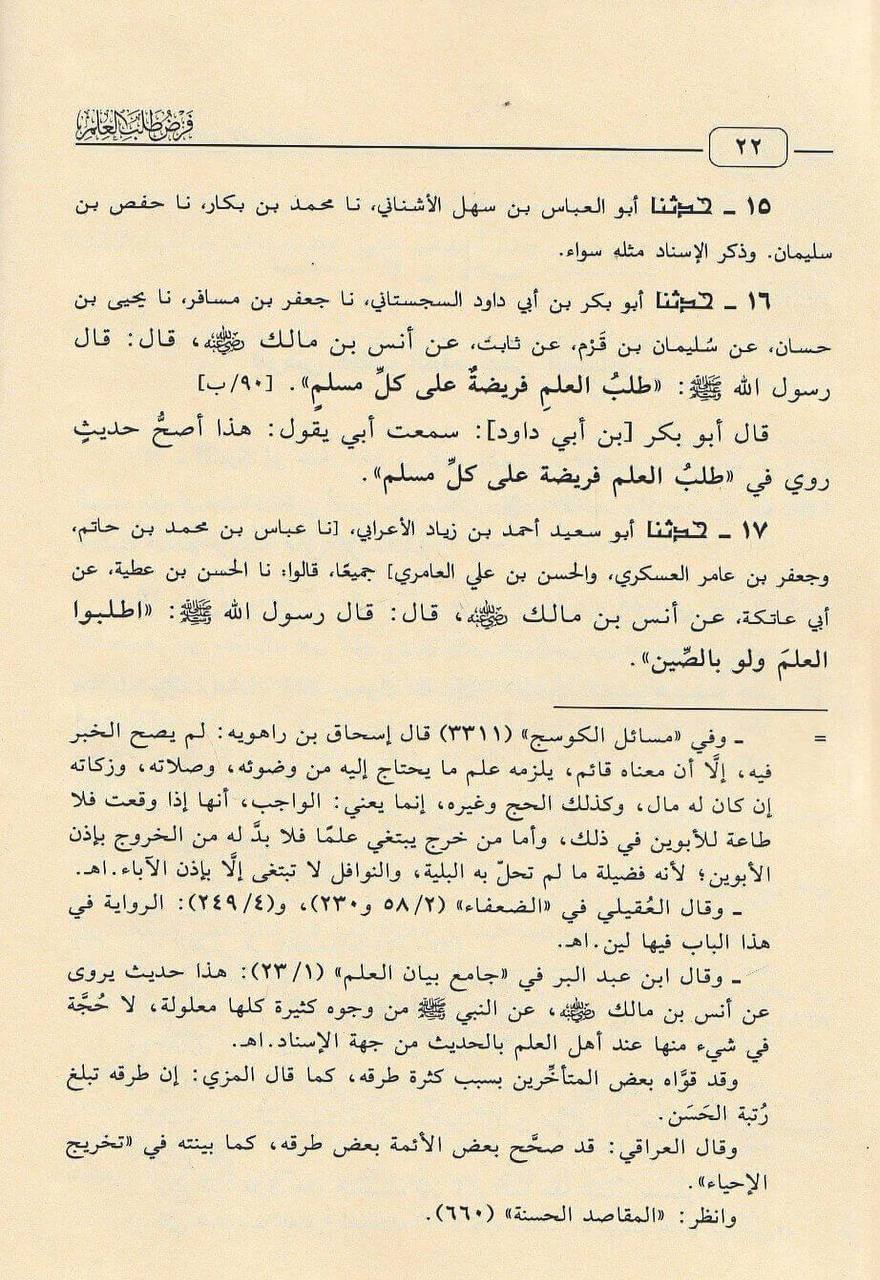 فَرْضُ طَلَبِ العِلْمِ
٢٢
١٥ ـ حدثنا أبو العباس بن سهل الأشناني، نا محمد بن بكار، نا حفص بن
سليمان. وذكر الإسناد مثله سواء.
١٦ ـ حدثنا أبو بكر بن أبي داود السجستاني، نا جعفر بن مسافر، نا يحيى بن
حسان، عن سُليمان بن قَرْم، عن ثابت، عن أنس بن مالك رضي الله عنه، قال: قال
رسول الله ﷺ: «طلبُ العلمِ فريضةٌ على كلِّ مسلمٍ». [٩٠/ب]
قال أبو بكر [بن أبي داود]: سمعت أبي يقول: هذا أصحُّ حديثٍ
روي في «طلبُ العلم فريضة على كلِّ مسلم».
١٧ ـ حدثنا أبو سعيد أحمد بن زياد الأعرابي، [نا عباس بن محمد بن حاتم،
وجعفر بن عامر العسكري، والحسن بن علي العامري] جميعًا، قالوا: نا الحسن بن عطية، عن
أبي عاتكة، عن أنس بن مالك رضي الله عنه، قال: قال رسول الله ﷺ: «اطلبوا
العلمَ ولو بالصِّين».
= ـ وفي «مسائل الكوسج» (٣٣١١) قال إسحاق بن راهويه: لم يصح الخبر
فيه، إلَّا أن معناه قائم، يلزمه علم ما يحتاج إليه من وضوئه، وصلاته، وزكاته
إن كان له مال، وكذلك الحج وغيره، إنما يعني: الواجب، أنها إذا وقعت فلا
طاعة للأبوين في ذلك، وأما من خرج يبتغي علمًا فلا بدَّ له من الخروج بإذن
الأبوين؛ لأنه فضيلة ما لم تحلّ به البلية، والنوافل لا تبتغى إلَّا بإذن الآباء.اهـ.
ـ وقال العُقيلي في «الضعفاء» (٥٨/٢ و٢٣٠)، و(٢٤٩/٤): الرواية في
هذا الباب فيها لين.اهـ.
ـ وقال ابن عبد البر في «جامع بيان العلم» (٢٣/١): هذا حديث يروى
عن أنس بن مالك رضي الله عنه، عن النبي ﷺ من وجوه كثيرة كلها معلولة، لا حُجَّة
في شيء منها عند أهل العلم بالحديث من جهة الإسناد.اهـ.
وقد قوَّاه بعض المتأخِّرين بسبب كثرة طرقه، كما قال المزي: إن طرقه تبلغ
رُتبة الحَسَن.
وقال العراقي: قد صحَّح بعض الأئمة بعض طرقه، كما بينته في «تخريج
الإحياء».
وانظر: «المقاصد الحسنة» (٦٦٠).